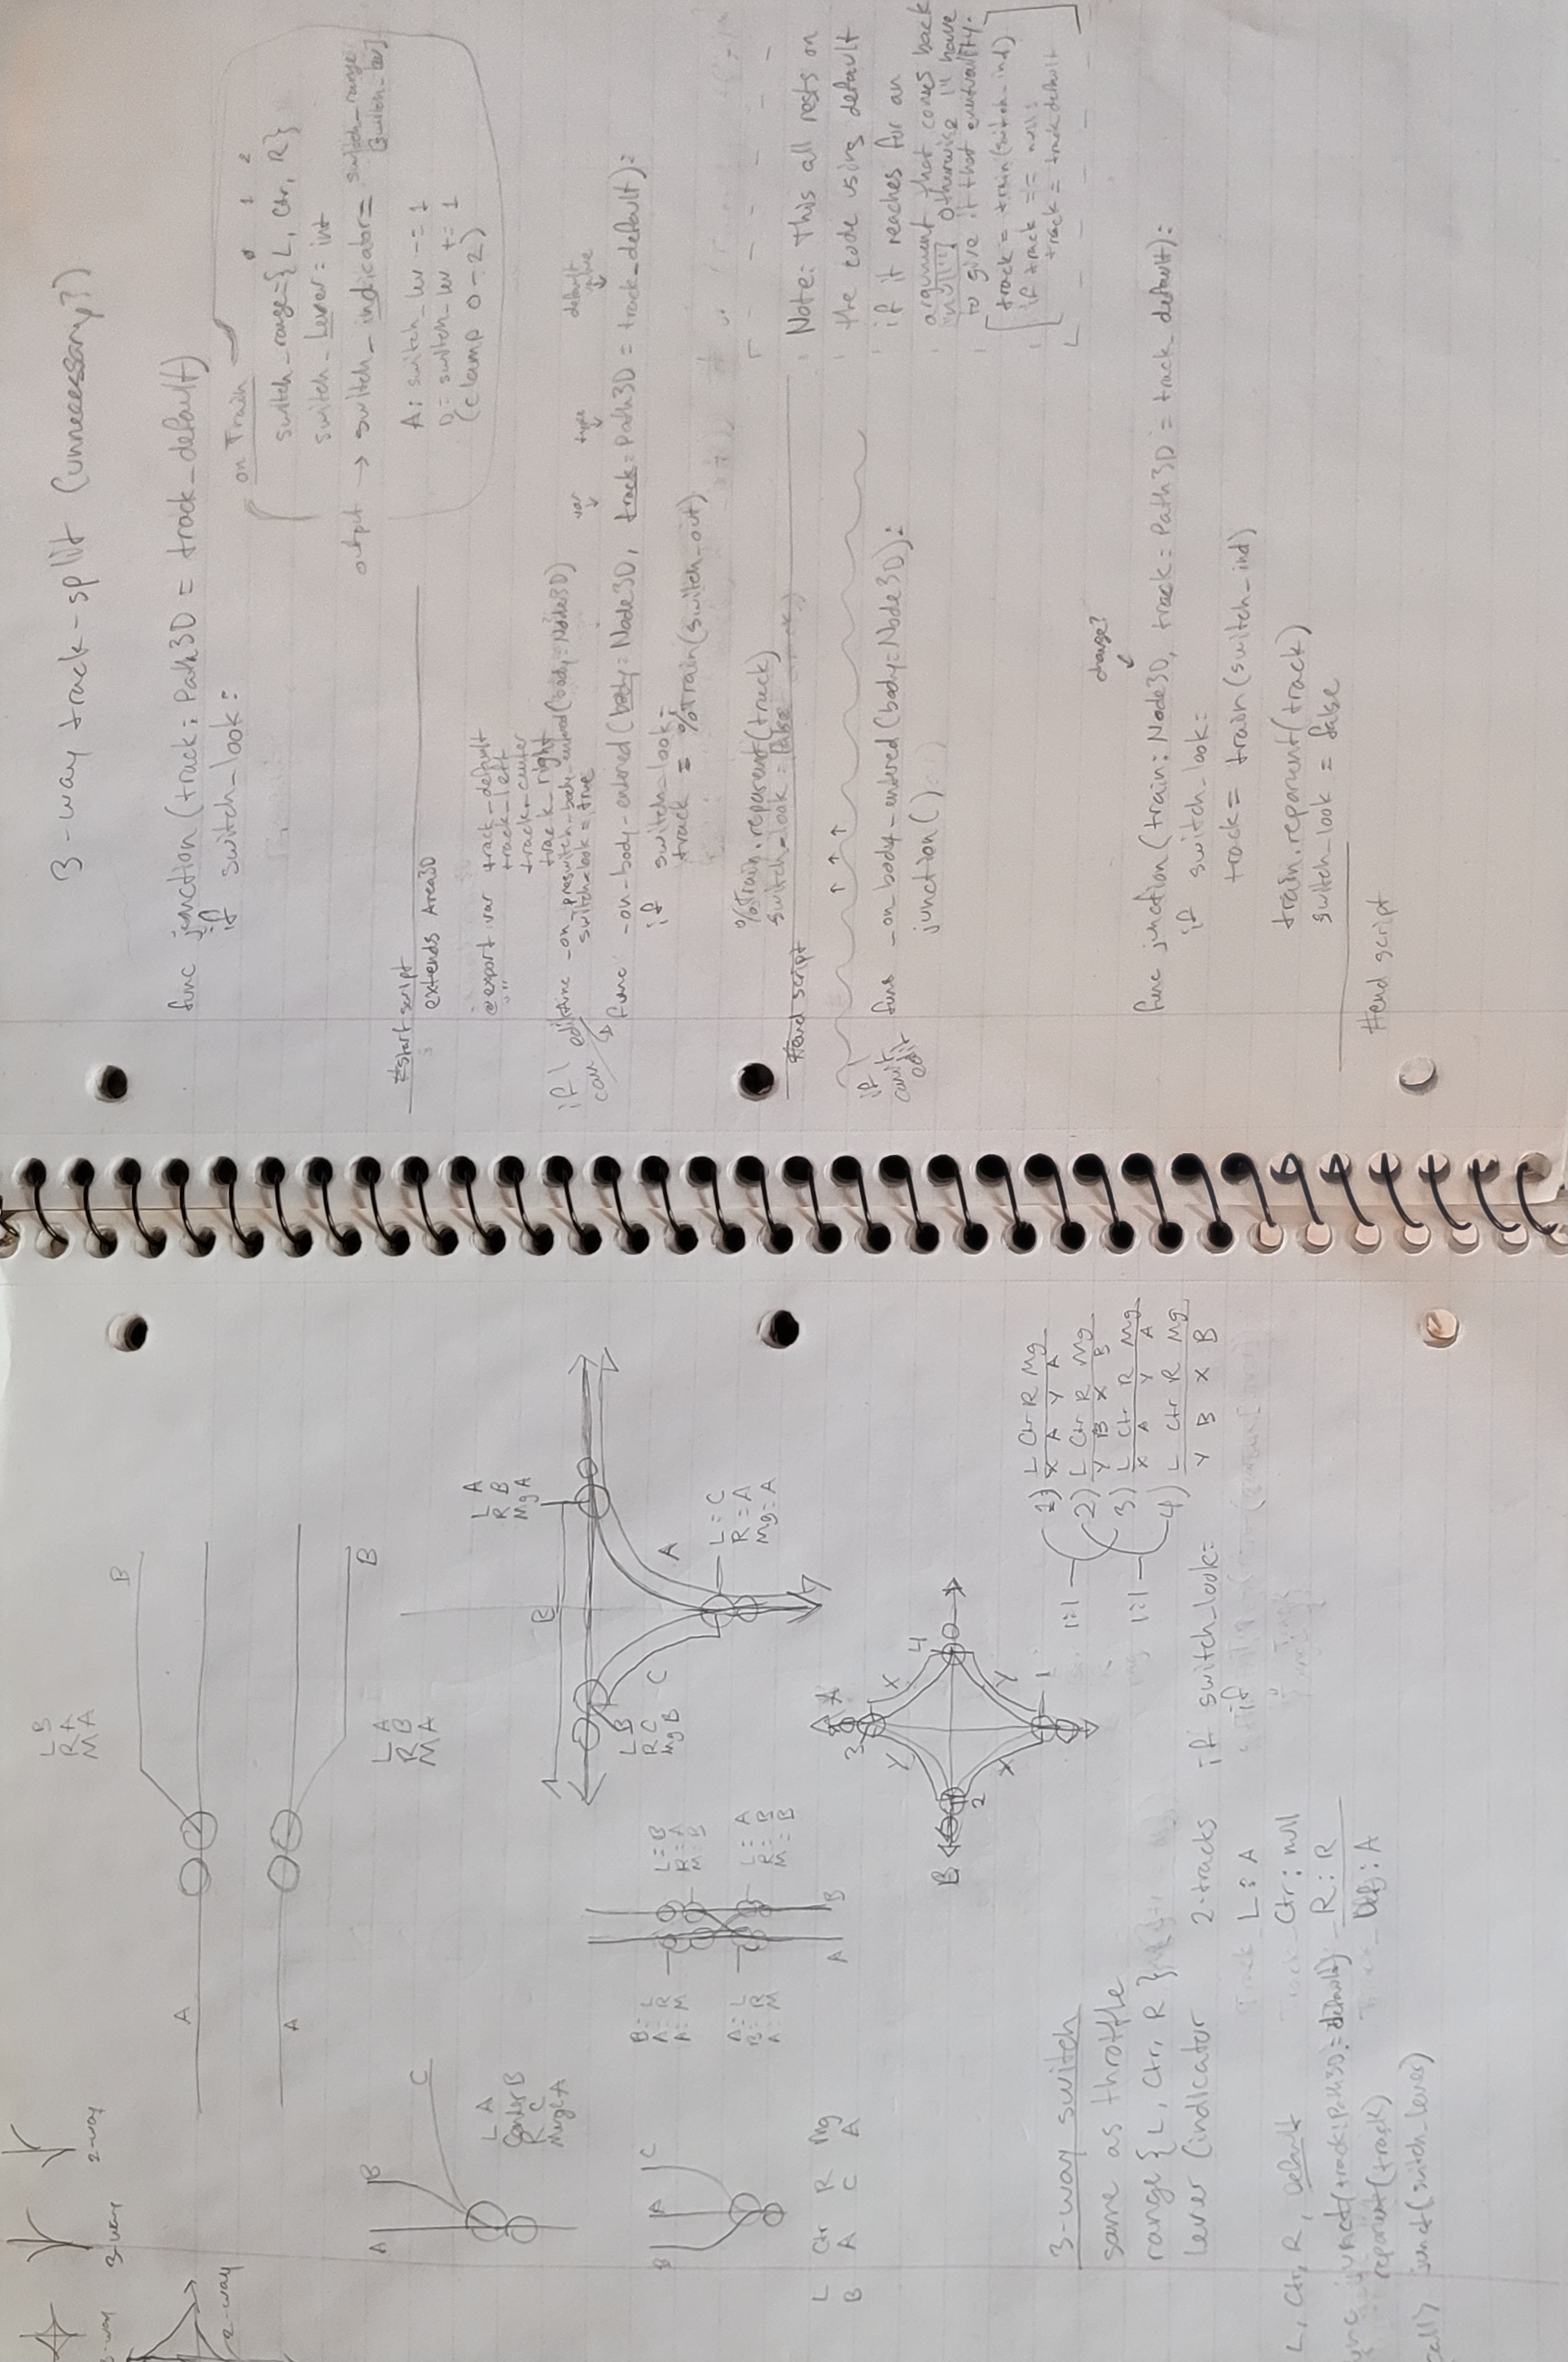 3-way track-split (unnecessary?)
func junction(track: Path3D = track_default)
if switch_look:
on Train
0 1 2
switch_range={L, Ctr, R}
switch_lever: int
output → switch_indicator= switch_range
[switch_lev]
A: switch_lev -= 1
D: switch_lev += 1
(clamp 0-2)
#start script
extends Area3D
@export var track_default
" " track_left
track_center
track_right
if I can edit
func _on_preswitch_body_entered(body:Node3D)
switch_look = true
var type default value
func _on_body_entered(body: Node3D, track: Path3D = track_default):
if switch_look:
track = %Train(switch_out)
%Train.reparent(track)
switch_look = false
#end script
Note: this all rests on
the code using default
if it reaches for an
argument that comes back
"null"! Otherwise I'll have
to give it that eventuality:
track = train(switch_ind)
if track == null:
track = track default
if can't edit
func _on_body_entered(body:Node3D):
junction()
change?
func junction(train: Node3D, track: Path3D = track_default):
if switch_look:
track = train(switch_ind)
train.reparent(track)
switch_look = false
#end script
3-way
2-way
2-way
A
B
L B
R A
M A
A
B
L A
R B
M A
A
B
C
L A
Center B
R C
Merge A
B
A
C
L Ctr R Mg
B A C A
B: L
A: R
A: M
A: L
B: R
A: M
L = B
R = A
M = B
L = A
R = B
M = B
A
B
L A
R B
Mg A
B
A
C
L B
R C
Mg B
L = C
R = A
Mg = A
A
B
X
Y
Y
X
1
2
3
4
1:1
1:1
1) L Ctr R Mg
X A Y A
2) L Ctr R Mg
Y B X B
3) L Ctr R Mg
X A Y A
4) L Ctr R Mg
Y B X B
3-way switch
same as throttle
range {L, Ctr, R}
lever (indicator
2-tracks
L: A
Ctr: null
R: R
Def: A
if switch_look:
L, Ctr, R, default
junct(track:Path3D:=default):
reparent(track)
junct(switch_lever)